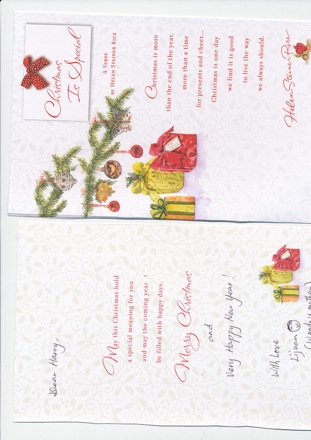 Christmas
Is Special
A Verse
by Helen Steiner Rice
Christmas is more
than the end of the year,
more than a time
for presents and cheer...
Christmas is one day
we find it is good
to live the way
we always should.
Helen Steiner Rice
Dear Harry
May this Christmas hold
a special meaning for you
and may the coming year !
be filled with happy days.
Merry Christmas
and
Very Happy New Year !
With Love